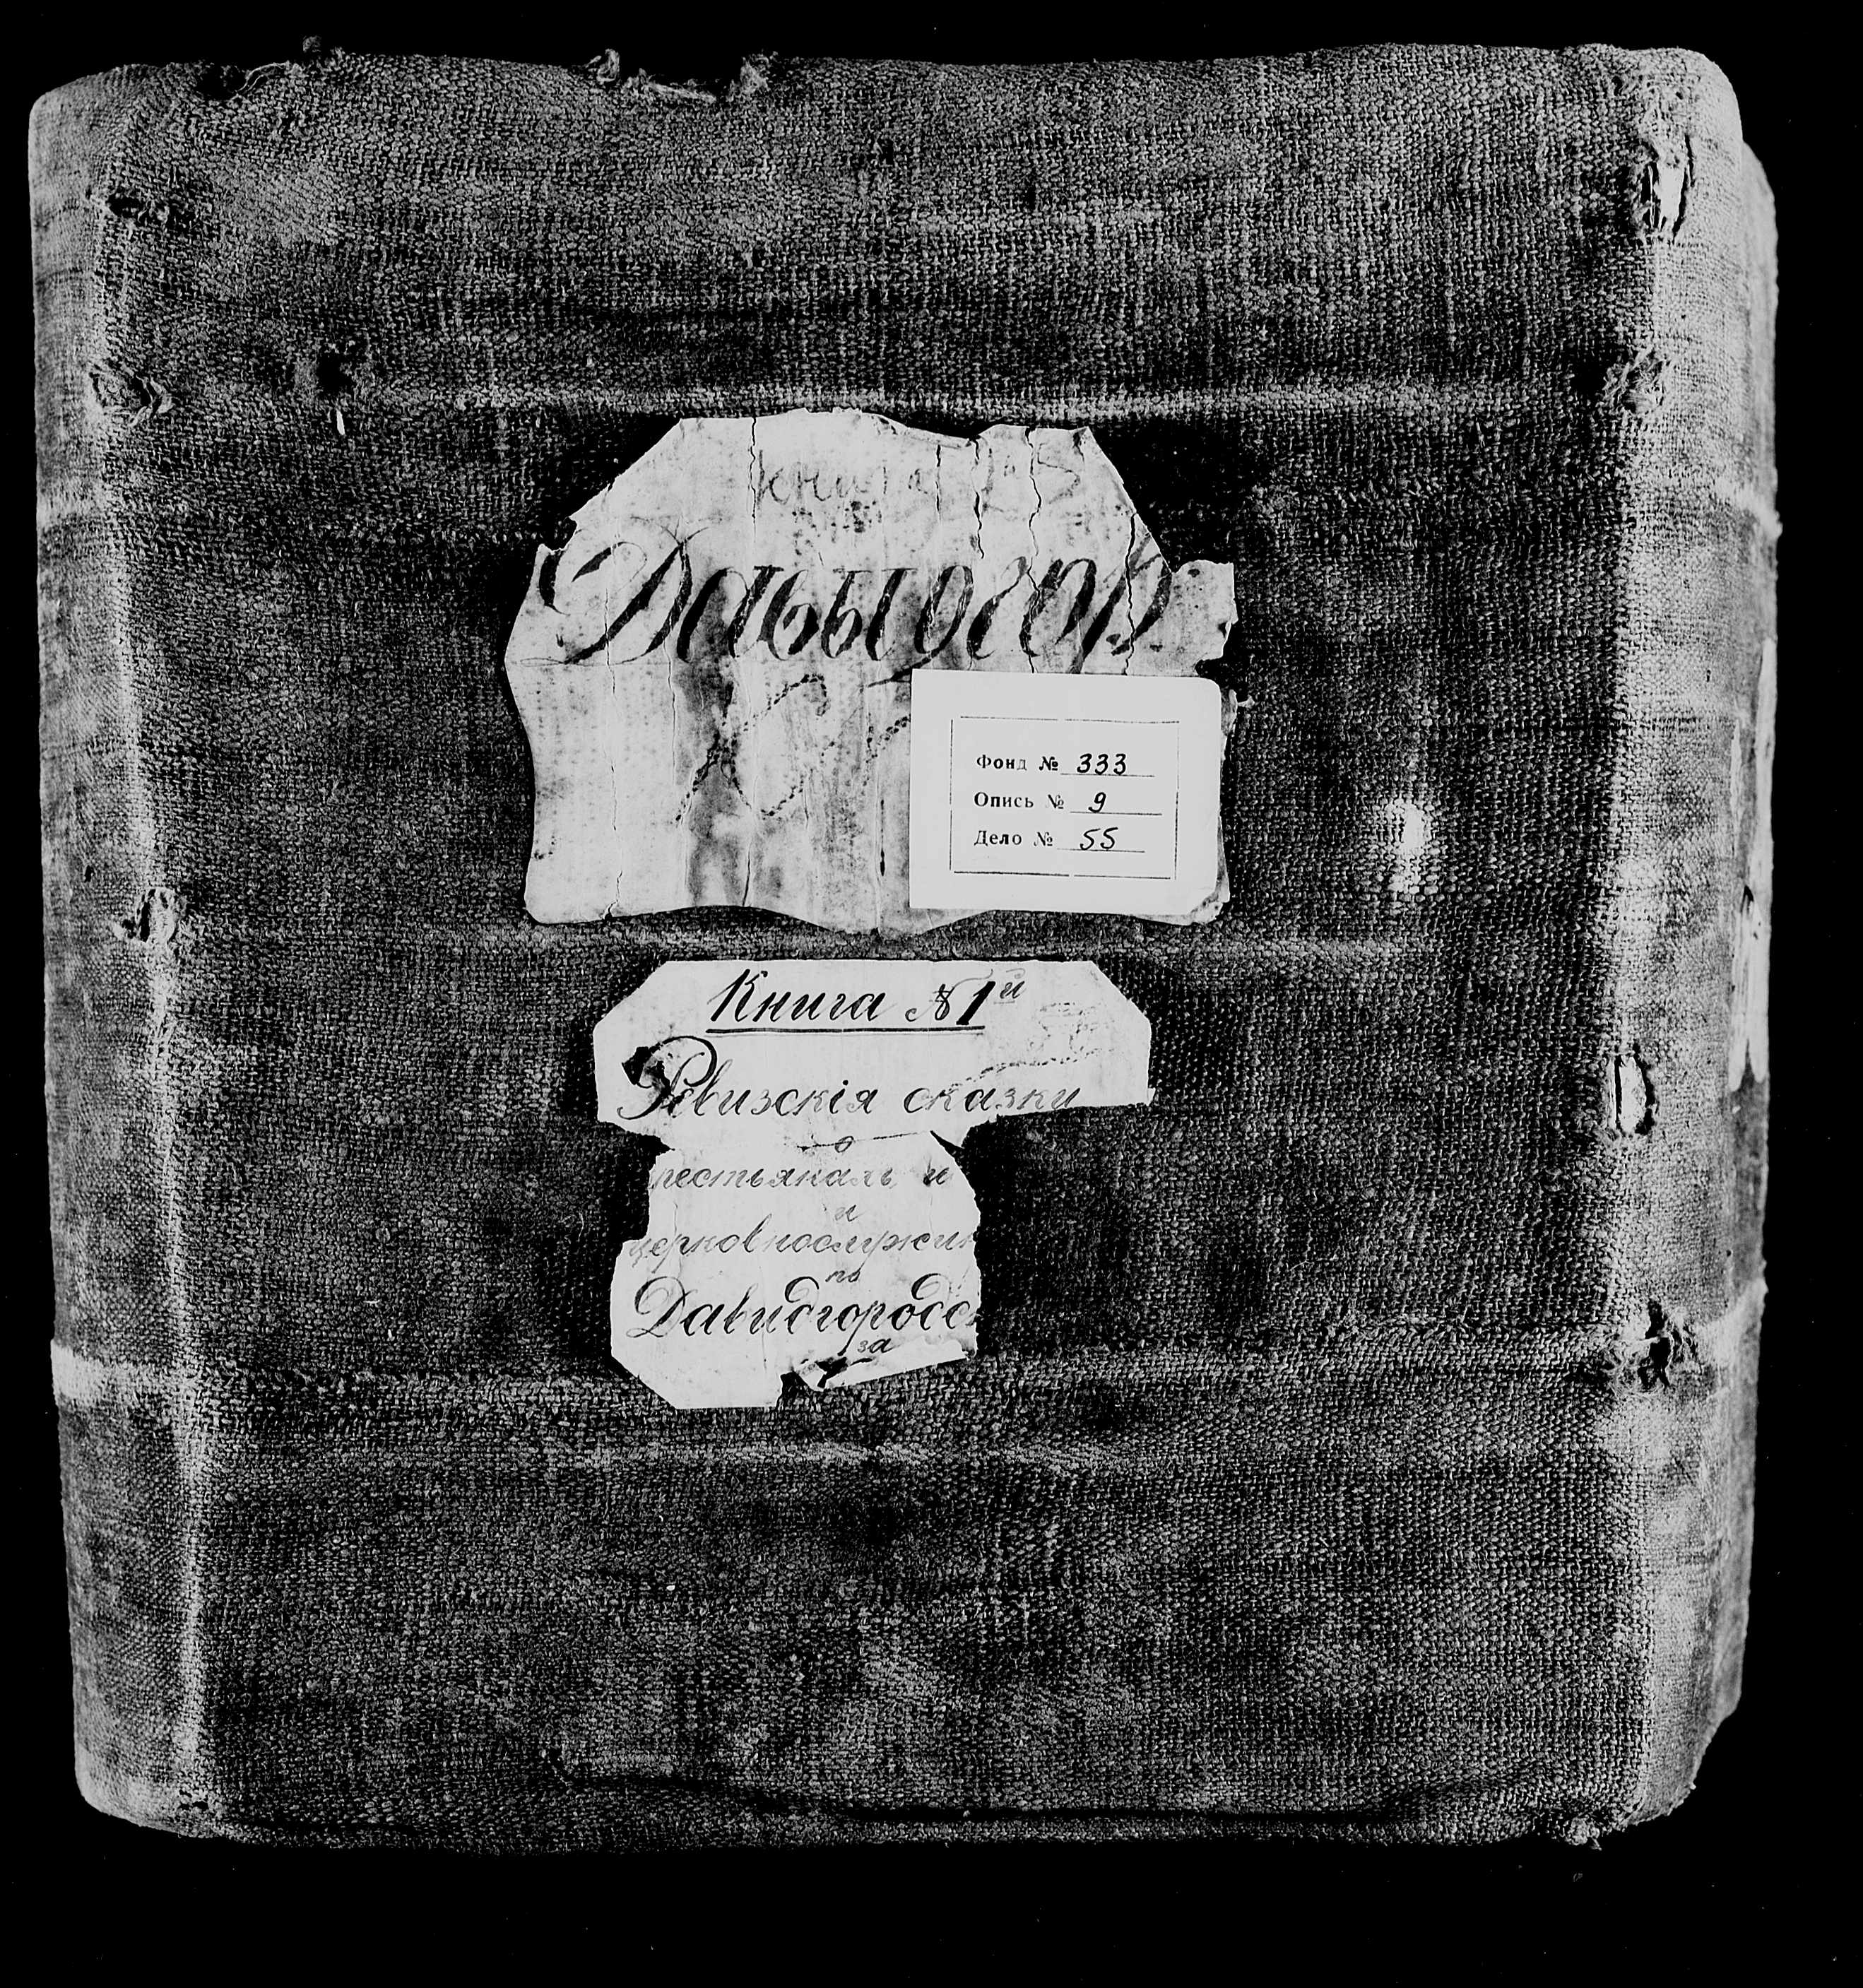 книга
Давыдгор.
Фонд № 333
Опись № 9
Дело № 55
Книга №1й
Ревизскія сказки
о
рестьянахъ и
и
церковнослужи
по
Давидгородс
за